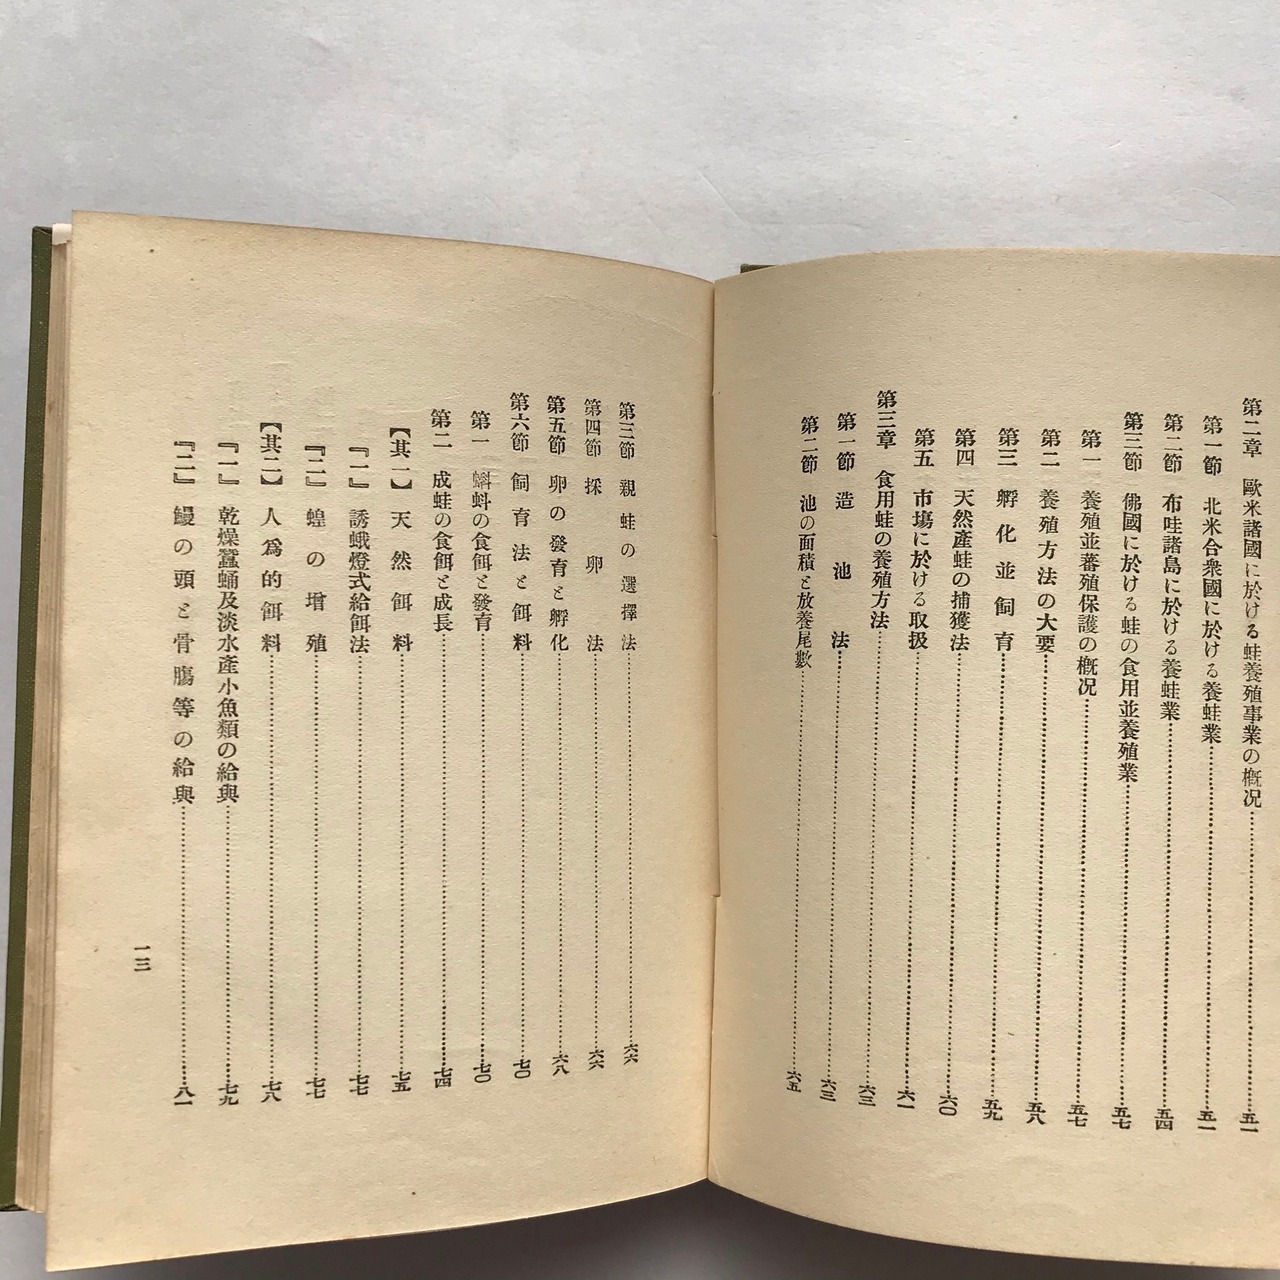 第二章　歐米諸國に於ける蛙養殖事業の槪况…………五一
第一節　北米合衆國に於ける養蛙業…………五一
第二節　布哇諸島に於ける養蛙業…………五四
第三節　佛國に於ける蛙の食用並養殖業…………五七
第一　養殖並蕃殖保護の槪况…………五七
第二　養殖方法の大要…………五八
第三　孵化並飼育…………五九
第四　天然產蛙の捕獲法…………六〇
第五　市塲に於ける取扱…………六一
第三章　食用蛙の養殖方法…………六三
第一節　造池法…………六三
第二節　池の面積と放養尾數…………六五
第三節　親蛙の選擇法…………六六
第四節　採卵法…………六六
第五節　卵の發育と孵化…………六八
第六節　飼育法と餌料…………七〇
第一　蝌蚪の食餌と發育…………七〇
第二　成蛙の食餌と成長…………七四
【其一】天然餌料…………七五
『一』誘蛾燈式給餌法…………七七
『二』蝗の增殖…………七七
【其二】人爲的餌料…………七八
『一』乾燥蠶蛹及淡水產小魚類の給與…………七九
『二』鰻の頭と骨膓等の給與…………八一
一三